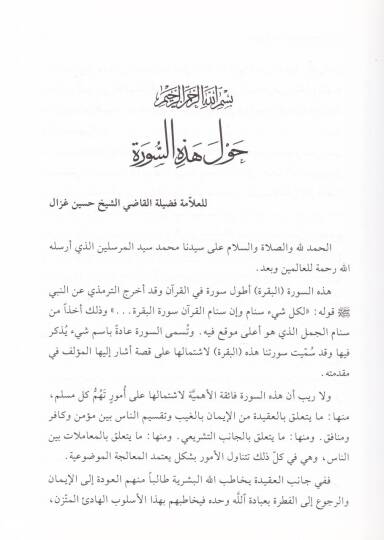 بسم الله الرحمن الرحيم
حَوْلَ هَذِهِ السُّورَةِ
للعلاّمة فضيلة القاضي الشيخ حسين غزال
الحمد لله والصلاة والسلام على سيدنا محمد سيد المرسلين الذي أرسله
الله رحمة للعالمين وبعد.
هذه السورة (البقرة) أطول سورة في القرآن وقد أخرج الترمذي عن النبي
ﷺ قوله: «لكل شيء سنام وإن سنام القرآن سورة البقرة...» وذلك أخذاً من
سنام الجمل الذي هو أعلى موقع فيه. وتُسمى السورة عادةً باسم شيء يُذكر
فيها وقد سُمّيت سورتنا هذه (البقرة) لاشتمالها على قصة أشار إليها المؤلف في
مقدمته.
ولا ريب أن هذه السورة فائقة الأهميَّة لاشتمالها على أُمورٍ تَهُمُّ كل مسلم،
منها: ما يتعلق بالعقيدة من الإيمان بالغيب وتقسيم الناس بين مؤمن وكافر
ومنافق. ومنها: ما يتعلق بالجانب التشريعي. ومنها: ما يتعلق بالمعاملات بين
الناس، وهي في كلّ ذلك تتناول الأمور بشكل يعتمد المعالجة الموضوعية.
ففي جانب العقيدة يخاطب الله البشرية طالباً منهم العودة إلى الإيمان
والرجوع إلى الفطرة بعبادة اللَّه وحده فيخاطبهم بهذا الأسلوب الهادئ المتّزن،